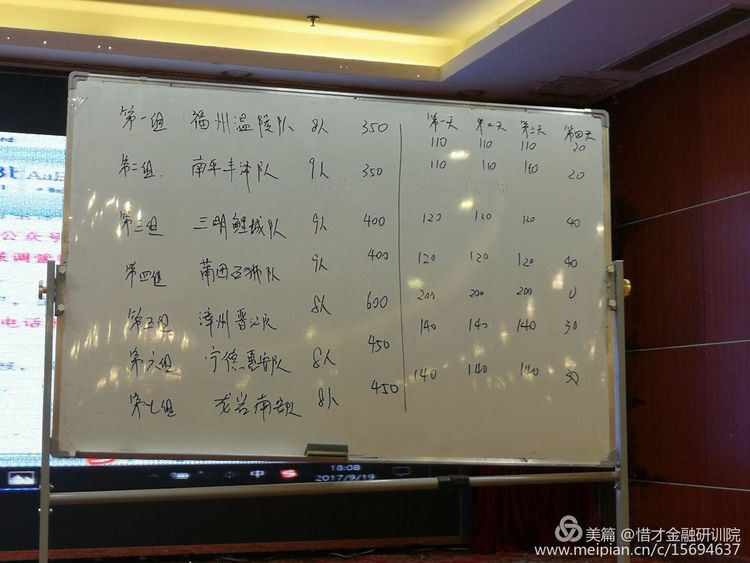 第一天 第二天 第三天 第四天
第一组 福州温陵队 8人 350 110 110 110 20
第二组. 南平丰泽队 9人 350 110 110 110 20
第三组 三明鲤城队 9人 400 120 120 120 40
第四组 莆田石狮队 9人 400 120 120 120 40
第五组 漳州晋江队 8人 600 200 200 200 0
第六组 宁德惠安队 8人 450 140 140 140 30
第七组 龙岩南 8人 450 140 140 140 30
公众号
强调
电话
中
18:08
2017/9/19
美篇 @惜才金融研训院
www.meipian.cn/c/15694637